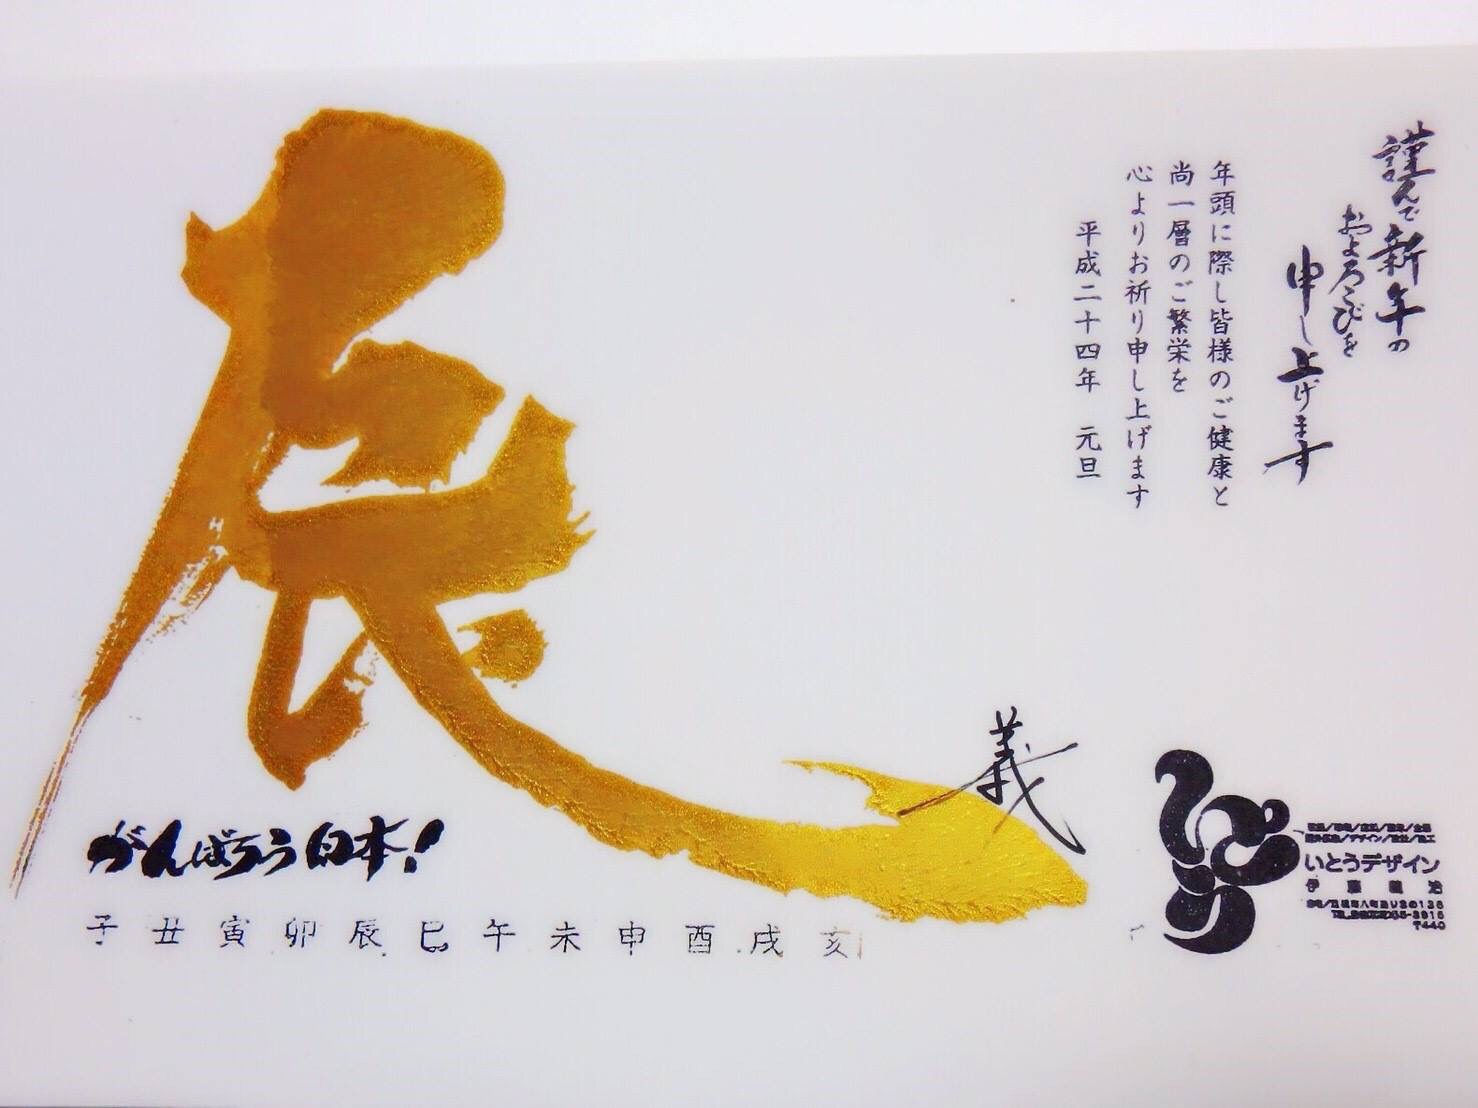 謹んで新年の
およろこびを
申し上げます
年頭に際し皆様のご健康と
尚一層のご繁栄を
心よりお祈り申し上げます
平成二十四年 元旦
辰
義
がんばろう日本!
子丑寅卯辰巳午未申酉戌亥
いとうデザイン